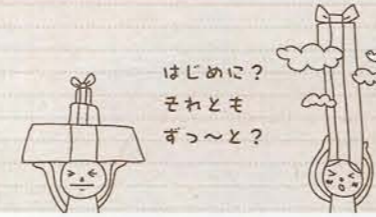 はじめに？
それとも
ずっ〜と？